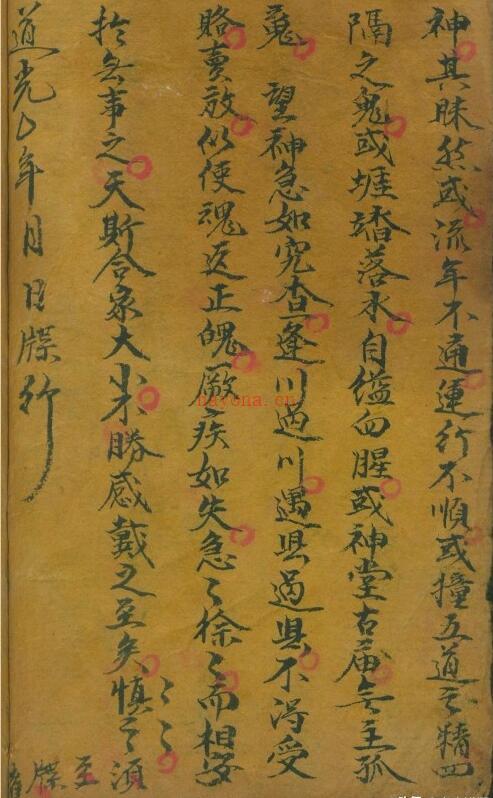 神其昧然或流年不通運行不順或撞五道之精四
隔之鬼或堐墦落水自缢血腥或神堂古庙無主孤
魂 望神急如究查逢川過川遇县過县不淂受
賂賣放似使魂返正魄厥疾如失急々徐々而相安
扵無事之天斯合家大小不勝感戴之至矣慎之須
々々
至牒者
道光 年 月 日牒行
nayona.cn